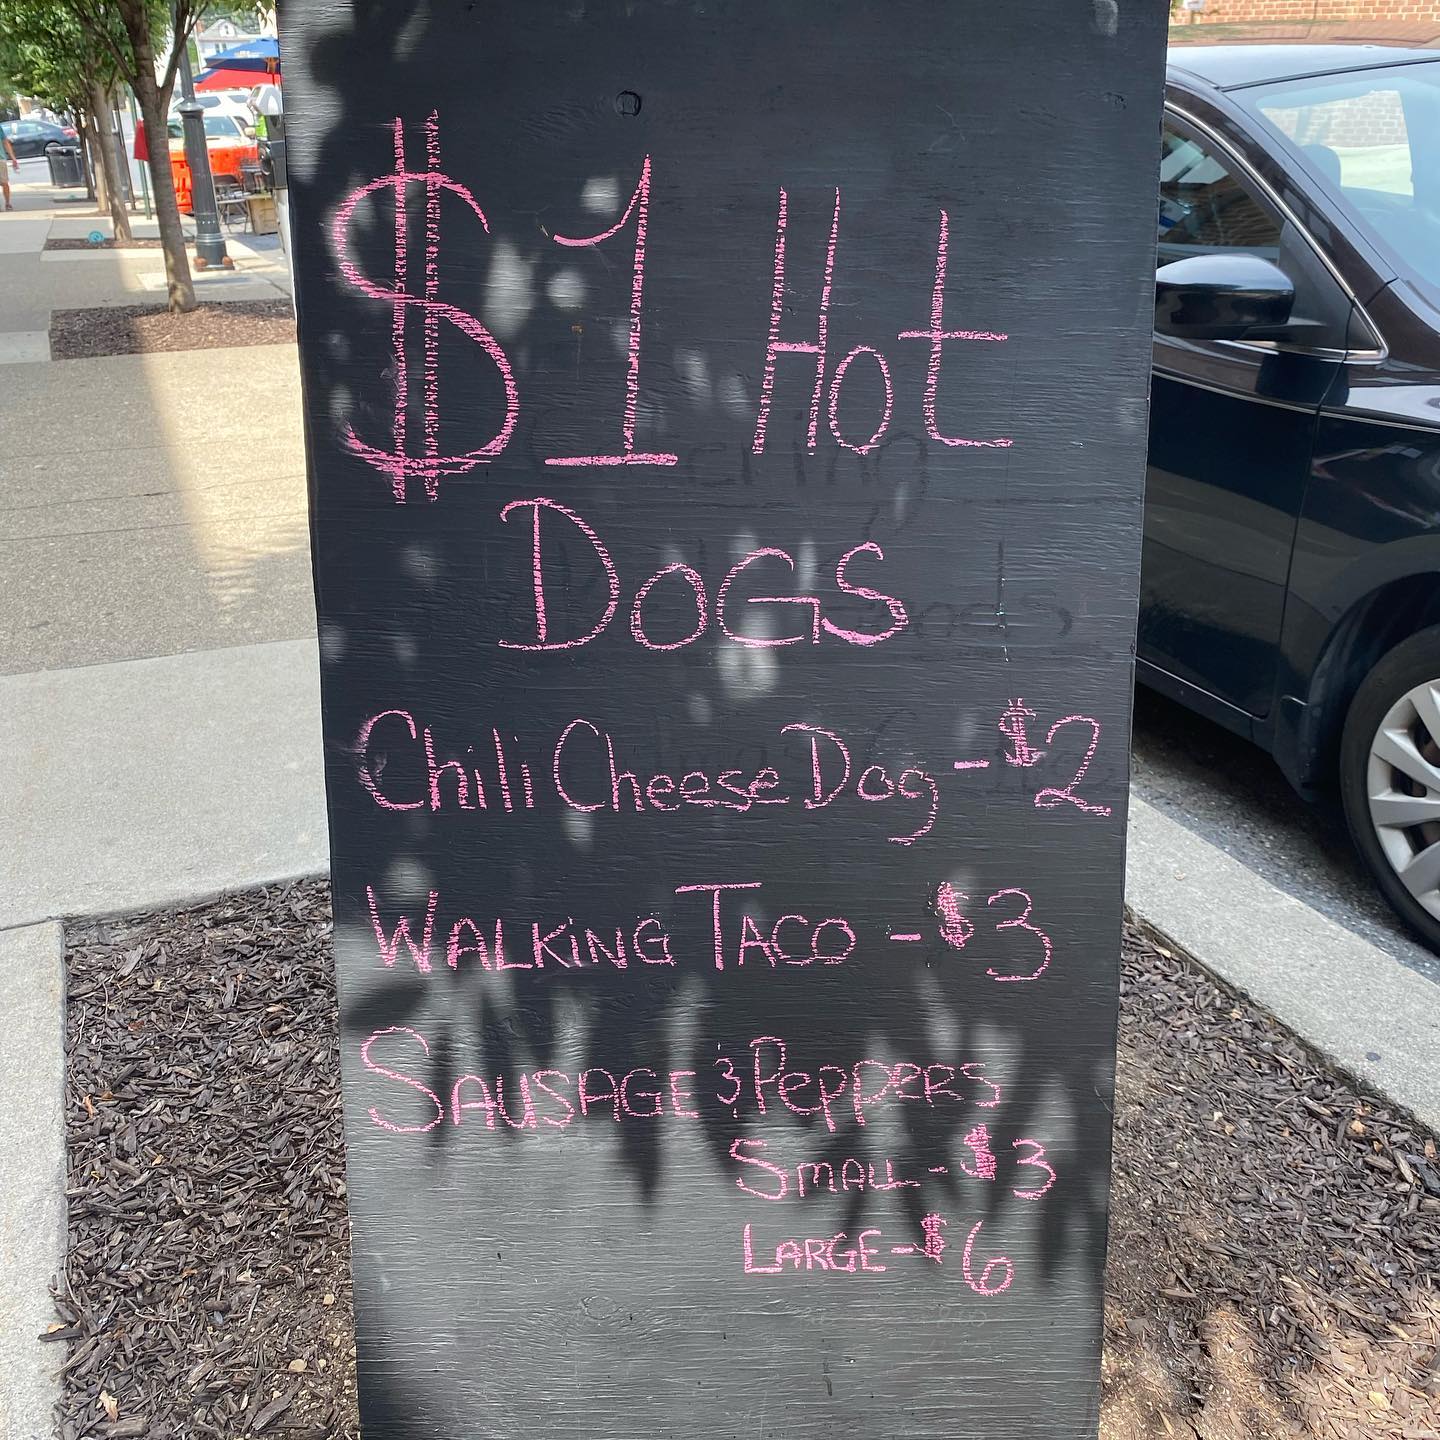 $1 Hot
DOGS
Chili Cheese Dog - $2
WALKING TACO - $3
SAUSAGE & PEPPERS
SMALL - $3
LARGE - $6